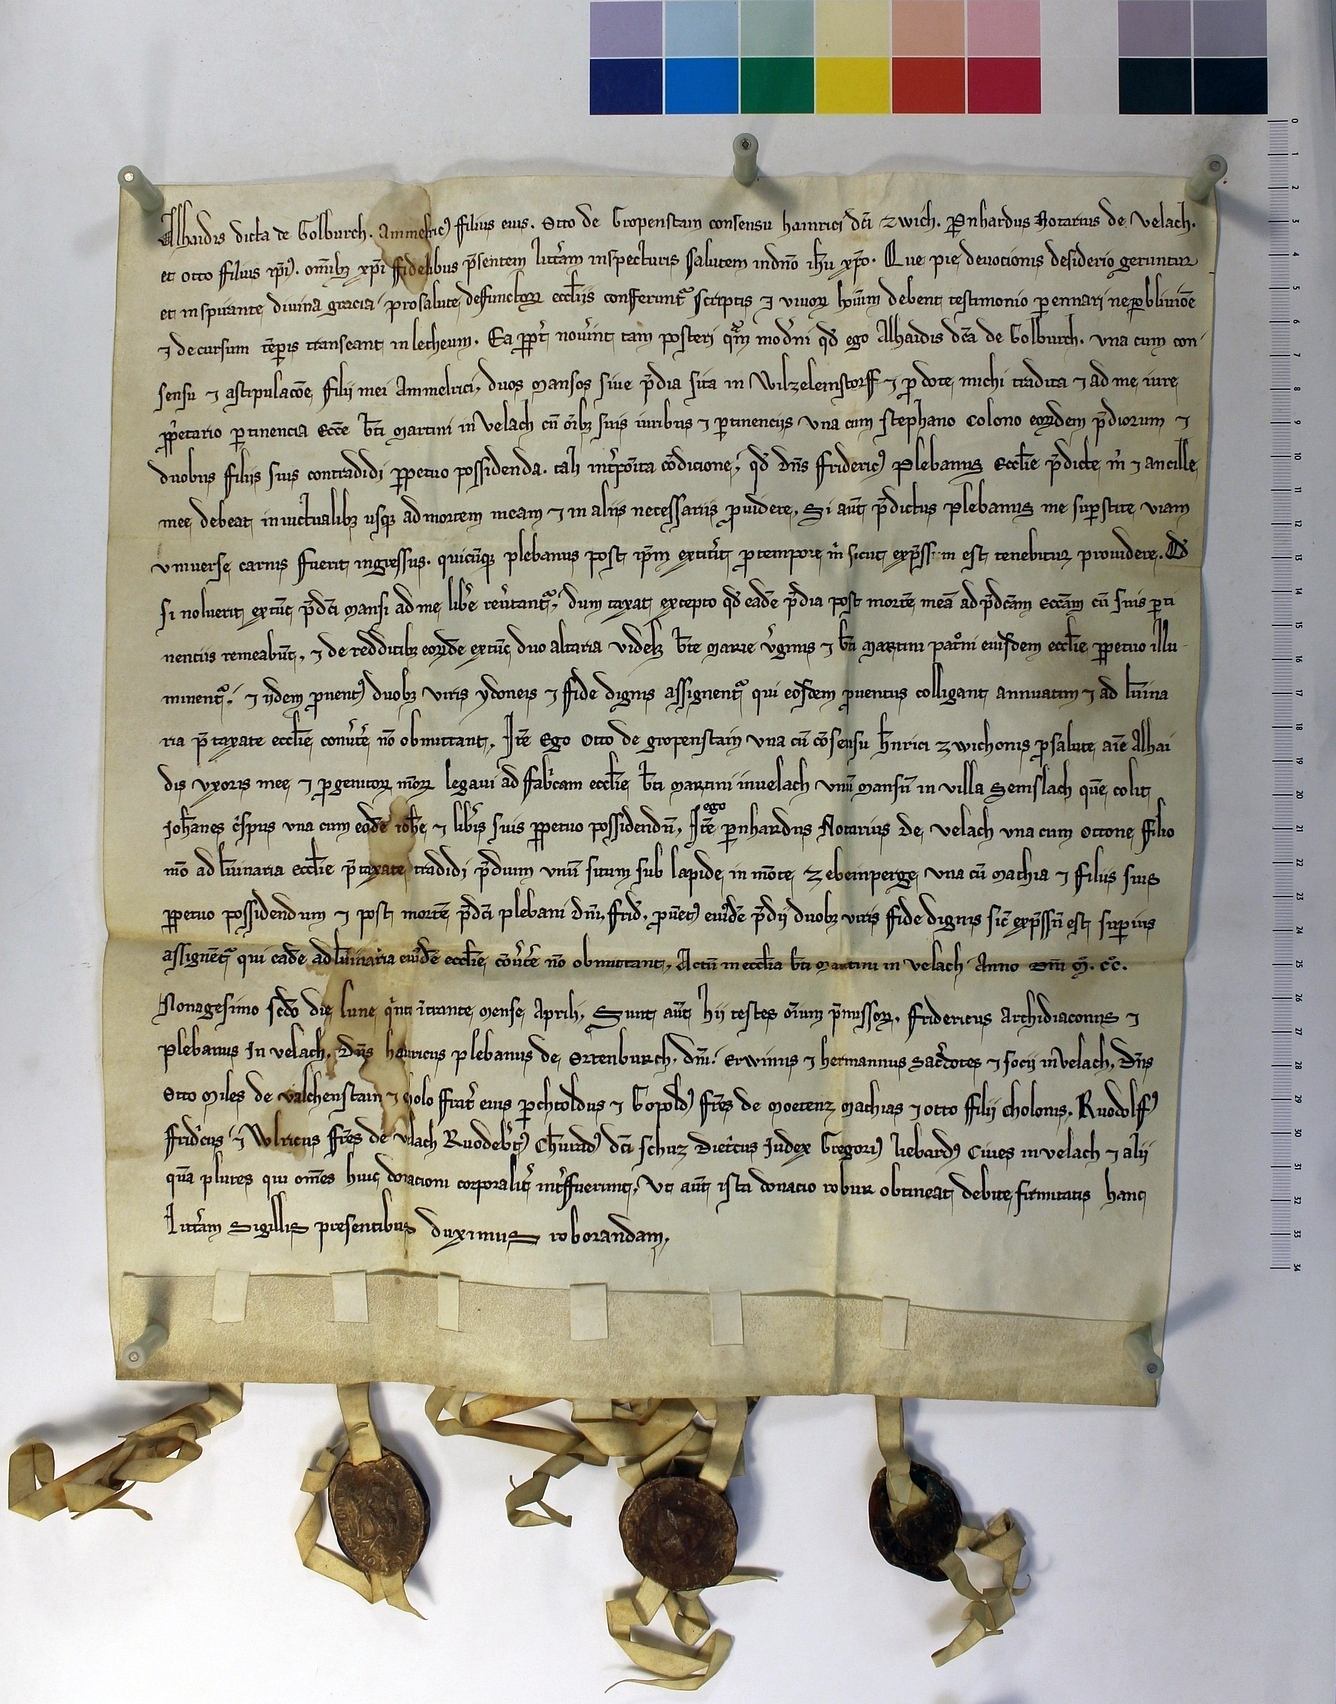 Alhaidis dicta de Golburch. Ammelric⁹ filius eius. Otto de Gropenstain consensu hainrici dc̄i zwich. Pernhardus Notarius de Velach.
et Otto filius ip̄i⁹. om̄ibꝫ xp̄i fidelibus p̄sentem litt̄am inspecturis salutem in dn̄o ih̄u xp̄o. Que pie deuocionis desiderio geruntur
et inspirante diuina gracia pro salute defunctoꝝ eccl̄iis conferunt᷑ scriptis ⁊ viuoꝝ ho͞im debent testimonio ꝑennari ne ꝑ obliuio͞e
⁊ decursum te͞pris transeant in letheum. Ea ꝓpt̄ nou̾int tam posteri q͛m mod̾ni qd̄ ego Alhaidis dc̄a de Golburch. vna cum con
sensu ⁊ astipulaco͞e filii mei Ammelrici, duos mansos siue p̄dia sita in Wilzeleinstorff ⁊ ꝑ dote michi tradita ⁊ ad me iure
ꝓp̄etario ꝑtinencia Ecc̄e bt̄i Martini in Velach cū o͞ibꝫ suis iuribus ⁊ ꝑtinenciis vna cum Stephano Colono eoꝝdem p̄diorum ⁊
duobus filiis suis contradidi ꝑpetuo possidenda. tali int̾po͞ita co͞dicione, qd̄ dn̄s Frideric⁹ Plebanus Eccl̄ie p̄dicte m̄ ⁊ ancille
mee debeat in victualibꝫ usqꝫ ad mortem meam ⁊ in aliis necessariis ꝓuidere, Si aut̄ p̄dictus plebanus me suꝑstite viam
vniuerse carnis fuerit ingressus. quicūqꝫ plebanus post ip̄m extit̾it ꝓ tempore m̄ sicut exp̄ssum est tenebitur prouidere. Qd̄
si noluerit extūc p̄dc̄i mansi ad me lib̾e reu̾tant᷑, dum taxat excepto qd̄ eade͞ p̄dia post morte͞ mea͞ ad p̄dc̄am Ecc̄am cū suis ꝑti
nenciis remeabūt, ⁊ de redditibꝫ eoꝝde͞ extūc duo altaria videlꝫ bt̄e Marie v̾ginis ⁊ bt̄i Martini pat̾ni eiusdem eccl̄ie ꝑpetuo illu
minent᷑. ⁊ iidem ꝓuent⁹ duobꝫ viris ydoneis ⁊ fide dignis assignent᷑ qui eosdem ꝓuentus colligant annuatim ⁊ ad lu͞ina
ria p̄taxate eccl̄ie conu̾t̾e no͞ obmittant. Ite͞ Ego Otto de gropenstain vna cū co͞sensu he͞nrici zwichonis ꝓ salute ai͞e Alhai
dis vxoris mee ⁊ ꝓgenitoꝝ m̄oꝝ legaui ad fabͥcam eccl̄ie bt̄i martini in velach vnū mansū in villa Semslach que͞ colit
Joh̄anes c̾spus vna cum eode͞ ioh̄e ⁊ lib̾is suis ꝑpetuo possidendū, Ite͞ ego pernhardus Notarius de Velach vna cum Ottone filio
m̄o ad lu͞inaria eccl̄ie p̄taxate tradidi p̄dium vnū situm sub lapide in mo͞te zebeinperge vna cū Mathia ⁊ filiis suis
ꝑpetuo possidendum ⁊ post morte͞ p̄dc̄i plebani dn̄i, Frid̾. ꝓue͞t⁹ eiusde͞ p̄dii duobꝫ viris fide dignis sic̄ exp̄ssū est suꝑius
assigne͞t᷑ qui eade͞ ad lu͞inaria eiusde͞ eccl̄ie co͞u̾t̾e no͞ obmittant, Actū in eccl̄ia bt̄i Martini in Velach Anno Dn̄i M̊. Cͦc̄.
Nonagesimo sc̄do die lune q̾nti i͞trante mense Aprili, Sunt aut̄ hii testes o͞ium p̄missoꝝ. Fridericus Archidiaconus ⁊
plebanus In velach, Dn̄s henricus plebanus de Ortenburch, dn̄i. Erwinus ⁊ hermannus Sac̾dotes ⁊ socii in Velach, Dn̄s
Otto Miles de valchenstain ⁊ cholo frat̾ eius perchtoldus ⁊ Gopold⁹ fr̄es de Moetenz Mathias ⁊ otto filii cholonis. Ruodolf⁹
Frid̾cus ⁊ Wlricus fr̄es de velach Ruodeb̾t⁹ Chu͞rad⁹ dc̄i schuz Diet̾cus Iudex Gregori⁹ liebard⁹ Ciues in velach ⁊ alii
qua͞ plures qui om̄es huic donacioni corporalit̾ int̾fuerunt, Vt aut̄ ista donacio robur obtineat debite firmitatis hanc
litt̾am Sigillis presentibus duximus roborandam.